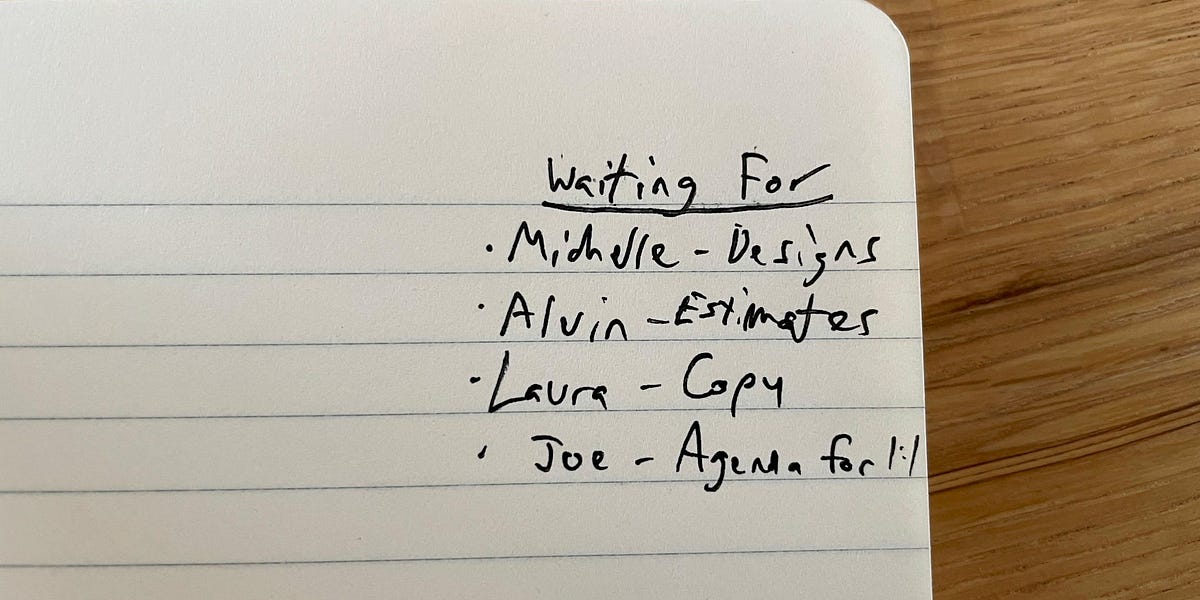 Waiting For
· Michelle - Designs
· Alvin - Estimates
· Laura - Copy
· Joe - Agenda for 1:1